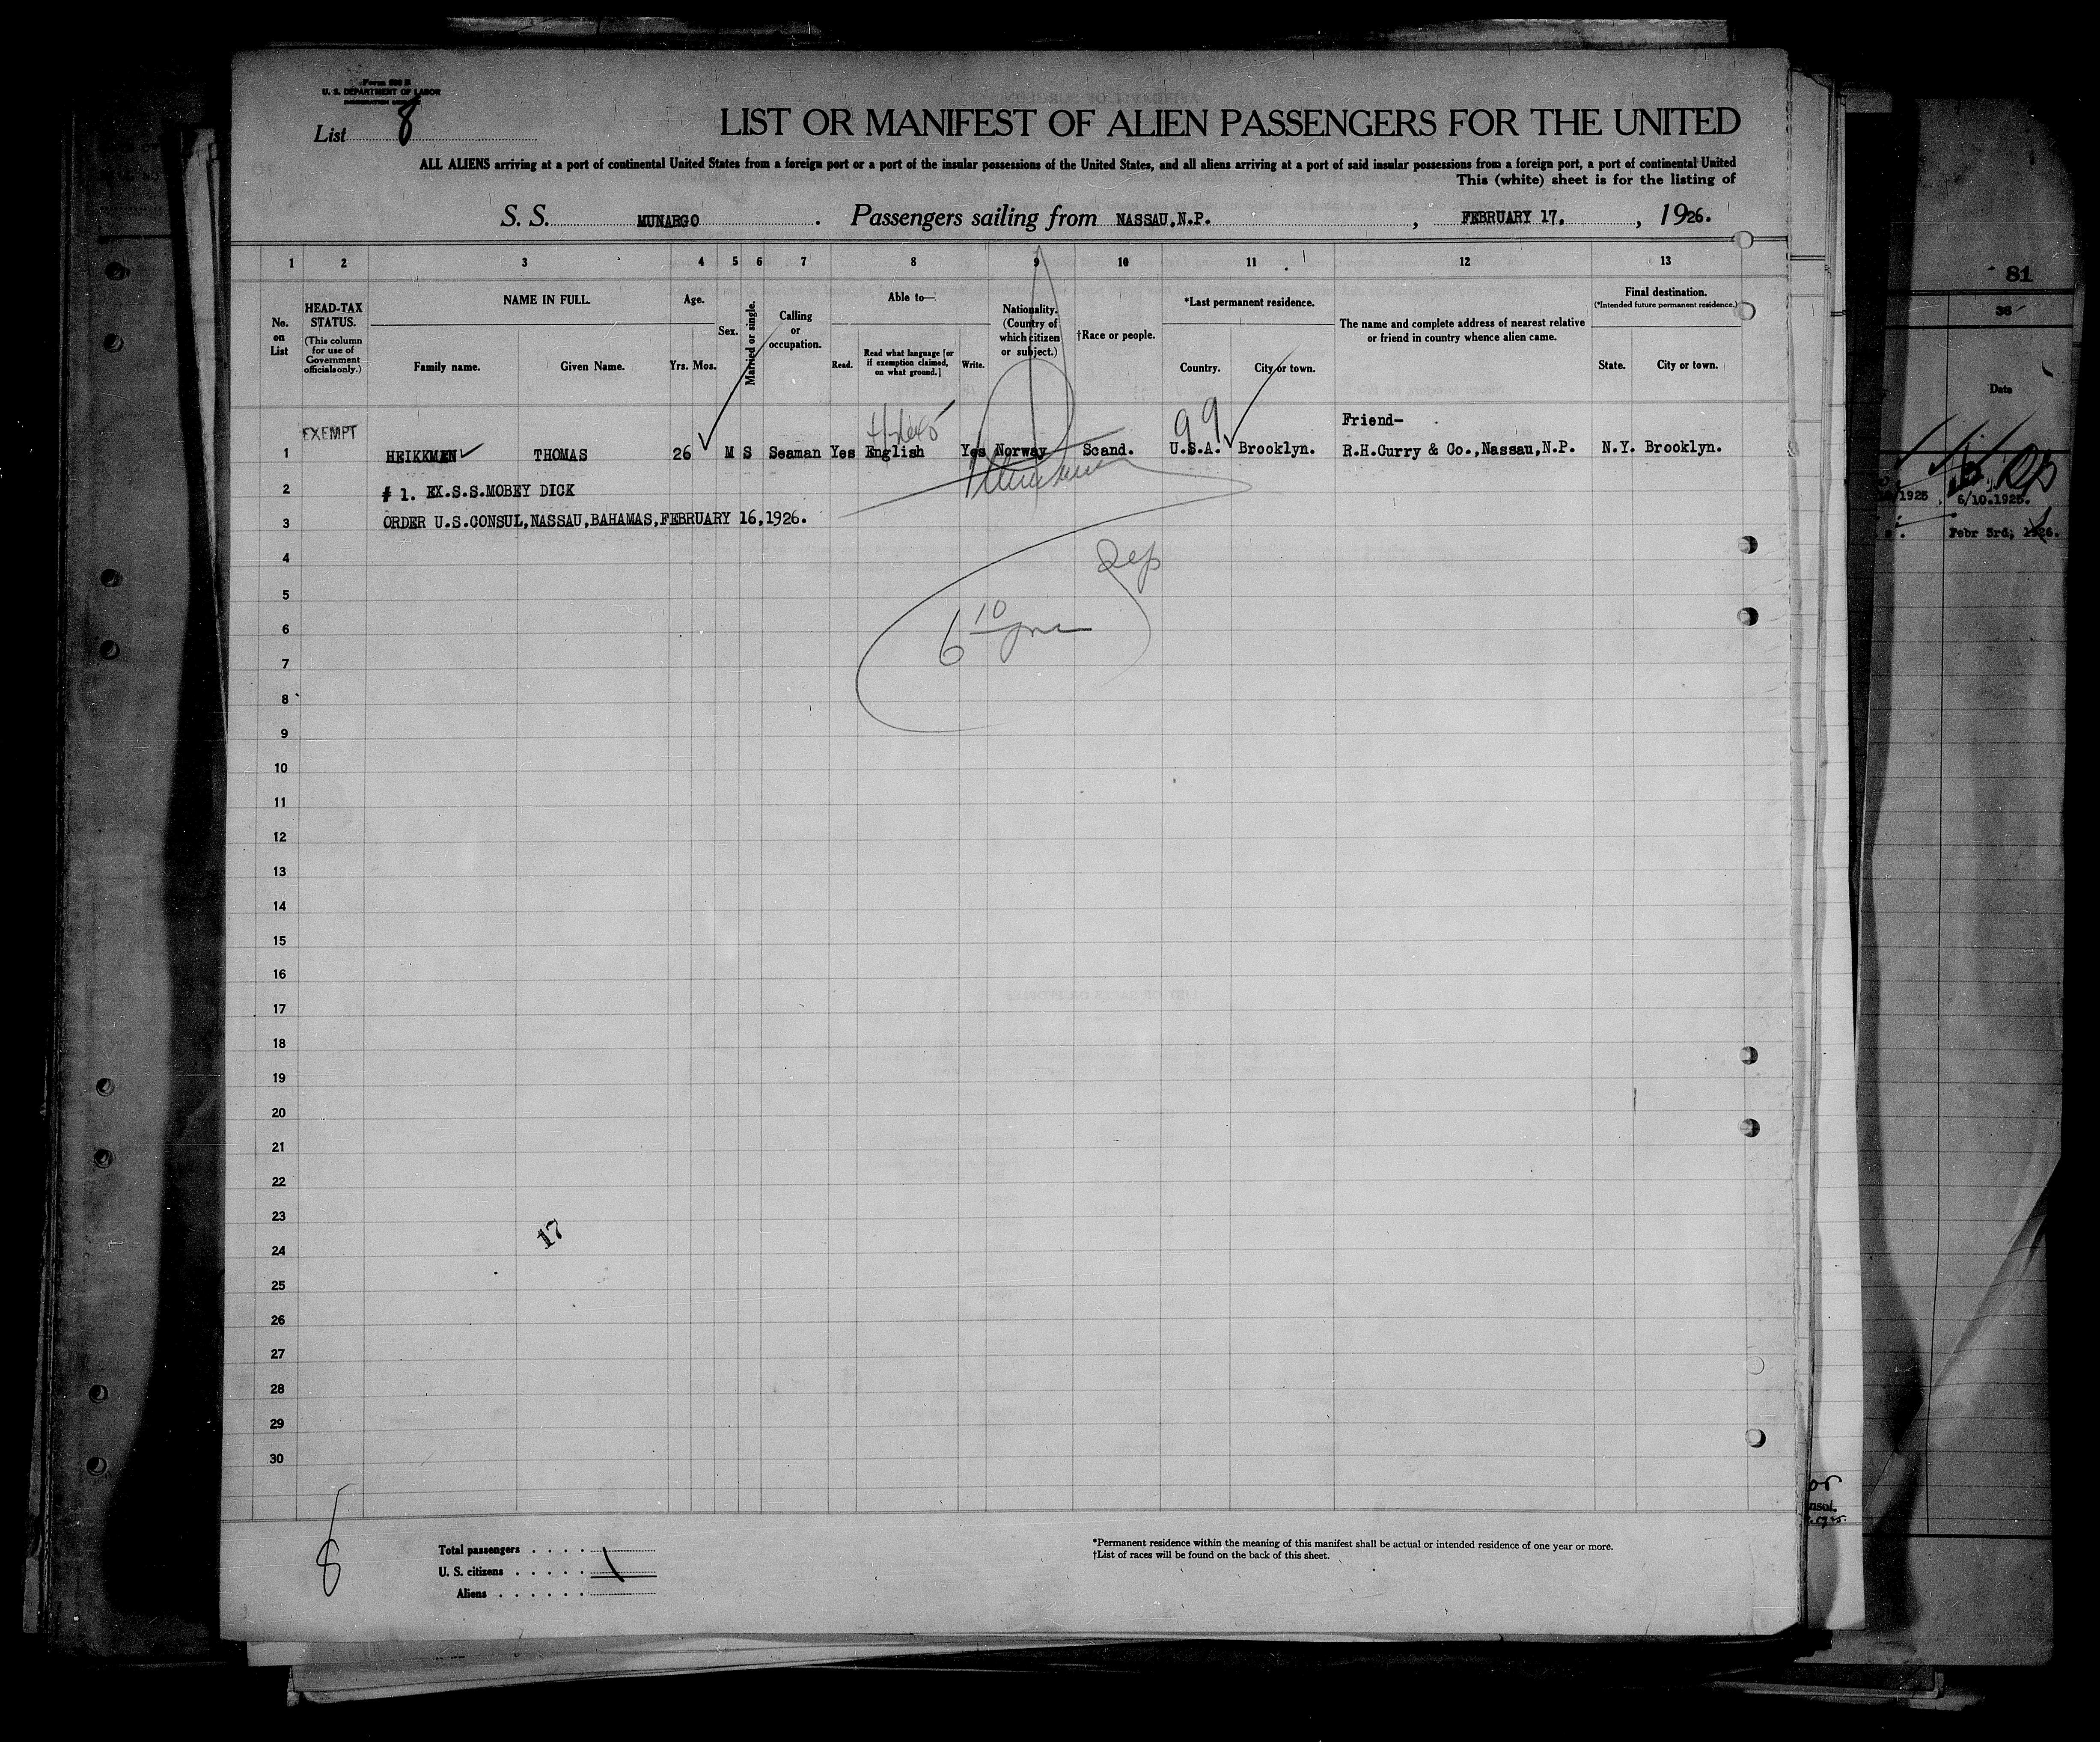 Form 500 B
U. S. DEPARTMENT OF LABOR
IMMIGRATION SERVICE
List 8
LIST OR MANIFEST OF ALIEN PASSENGERS FOR THE UNITED
ALL ALIENS arriving at a port of continental United States from a foreign port or a port of the insular possessions of the United States, and all aliens arriving at a port of said insular possessions from a foreign port, a port of continental United
This (white) sheet is for the listing of
S. S. MUNARGO. Passengers sailing from NASSAU,N.P., FEBRUARY 17., 1926.
1 2 3 4 5 6 7 8 9 10 11 12 13
No. on List
HEAD-TAX STATUS.
(This column for use of Government officials only.)
NAME IN FULL.
Family name. Given Name.
Age.
Yrs. Mos.
Sex.
Married or single.
Calling or occupation.
Able to—
Read. Read what language [or if exemption claimed, on what ground.] Write.
Nationality. (Country of which citizen or subject.)
†Race or people.
*Last permanent residence.
Country. City or town.
The name and complete address of nearest relative or friend in country whence alien came.
Final destination.
(*Intended future permanent residence.)
State. City or town.
EXEMPT
Friend-
99
1 HEIKKMEN THOMAS 26 M S Seaman Yes English Yes Norway Scand. U.S.A. Brooklyn. R.H.Curry & Co.,Nassau,N.P. N.Y. Brooklyn.
2 # 1. EX.S.S.MOBEY DICK
3 ORDER U.S.CONSUL,NASSAU,BAHAMAS,FEBRUARY 16,1926.
4
5
6 6 10
7
8
9
10
11
12
13
14
15
16
17
18
19
20
21
22
23
17
24
25
26
27
28
29
30
8
Total passengers
U. S. citizens
Aliens
*Permanent residence within the meaning of this manifest shall be actual or intended residence of one year or more.
†List of races will be found on the back of this sheet.
81
36
Date
1925
6/10.1925.
Febr 3rd, 1926.
nsul.